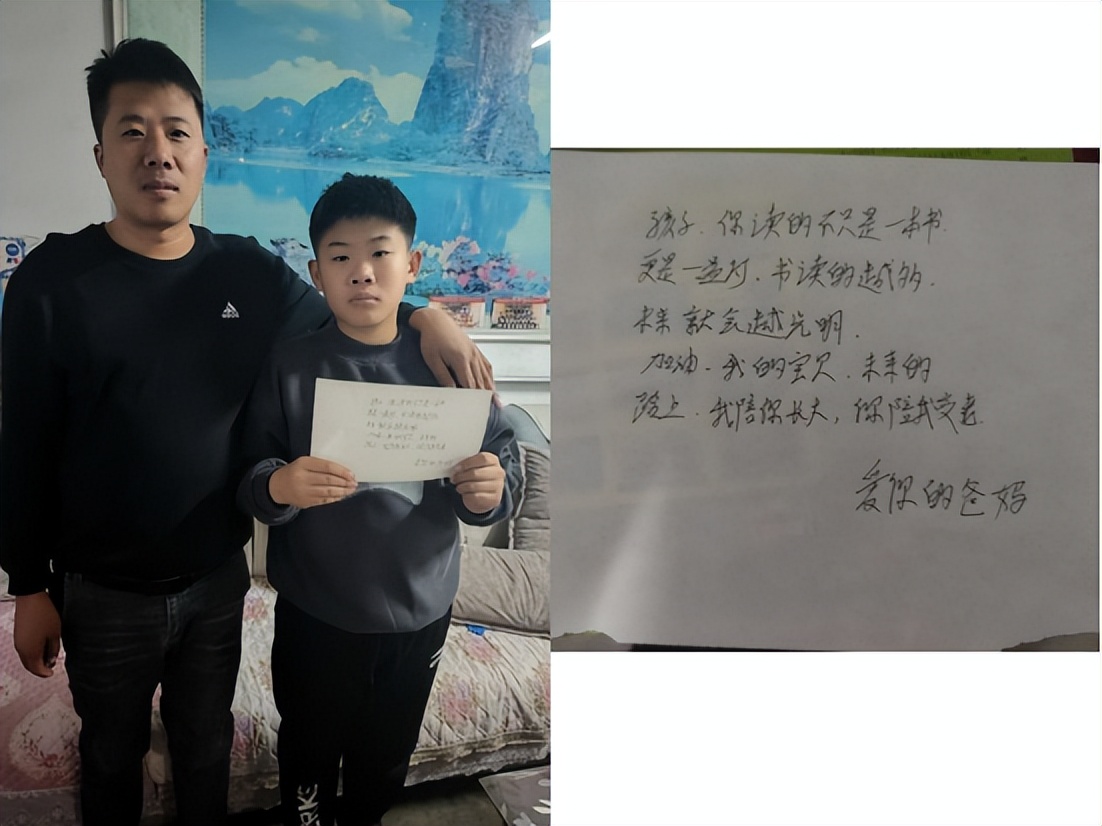 孩子.你读的不只是一本书.
更是一盏灯.书读的越多.
未来就会越光明.
加油.我的宝贝.未来的
路上.我陪你长大,你陪我变老.
爱你的爸妈